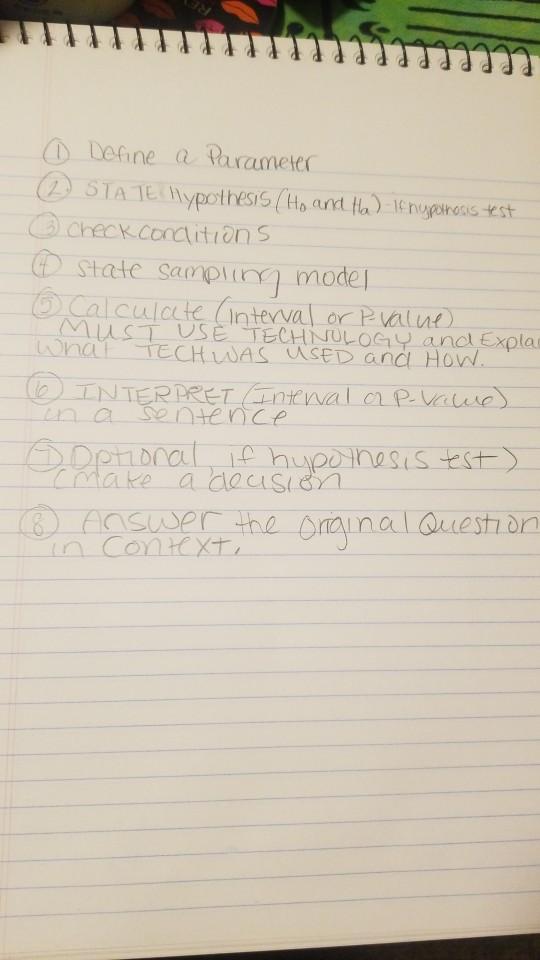 ① Define a Parameter
② STATE Hypothesis (Ho and Ha) - if hypothesis test
③ check conditions
④ state sampling model
⑤ Calculate (interval or P-value)
MUST USE TECHNOLOGY and Explai
what TECH WAS USED and HOW.
⑥ INTERPRET (Interval or P-Value)
in a sentence
⑦ Optional, if hypothesis test)
(Make a decision
⑧ Answer the original Question
in Context.